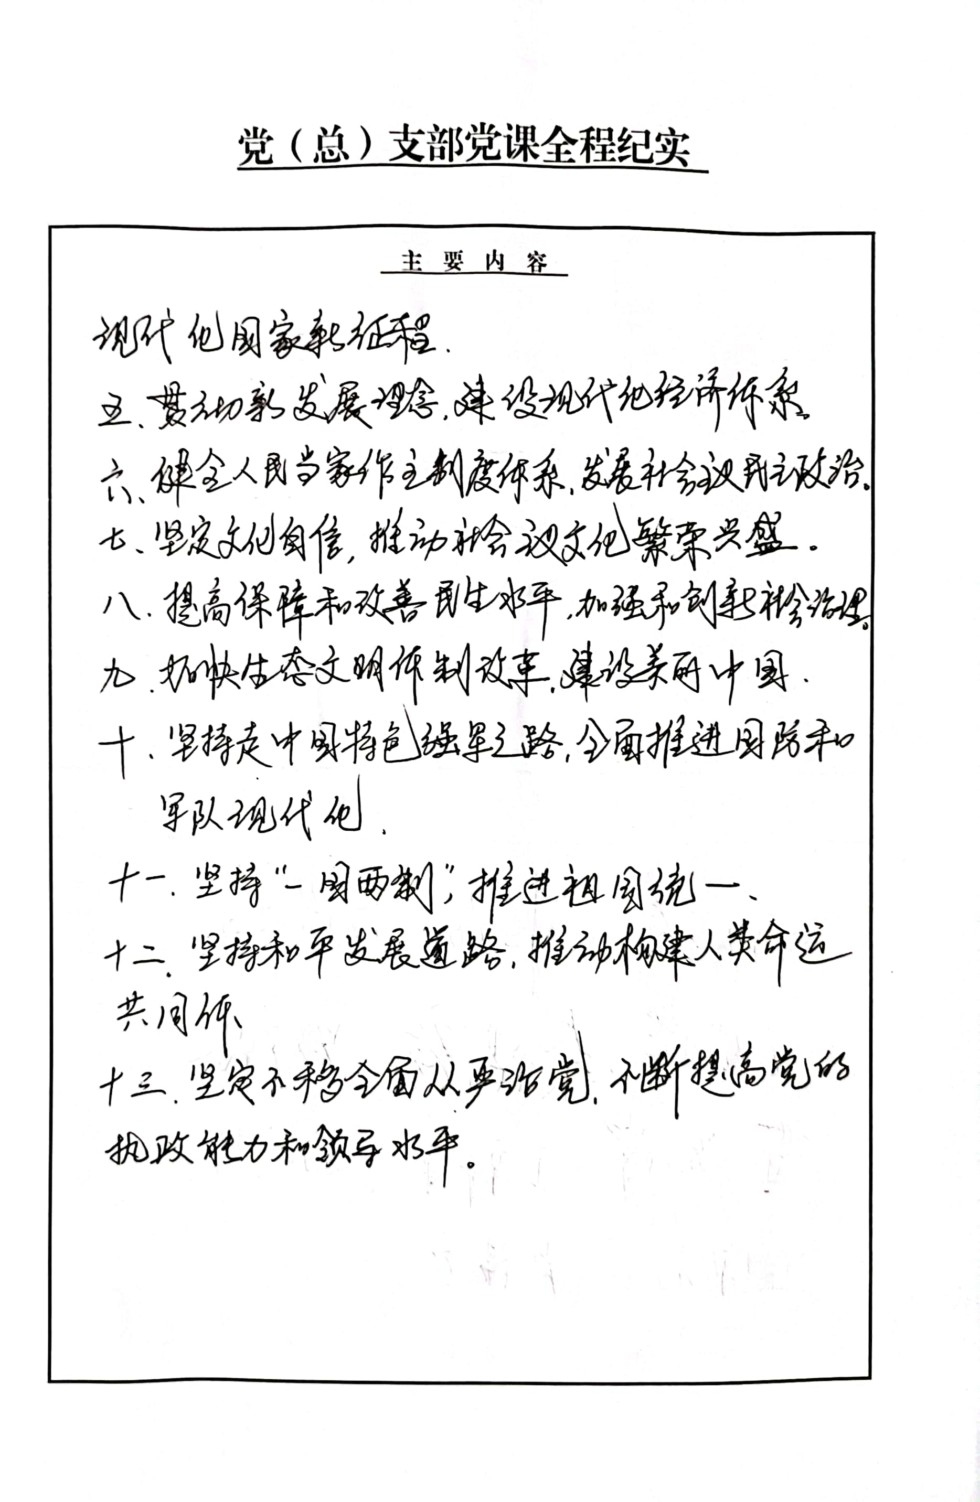 党（总）支部党课全程纪实
主要内容
现代化国家新征程.
五、贯彻新发展理念,建设现代化经济体系。
六、健全人民当家作主制度体系,发展社会主义民主政治。
七、坚定文化自信,推动社会主义文化繁荣兴盛。
八.提高保障和改善民生水平,加强和创新社会治理。
九.加快生态文明体制改革,建设美丽中国.
十.坚持走中国特色强军之路,全面推进国防和
军队现代化.
十一.坚持“一国两制”,推进祖国统一、
十二.坚持和平发展道路,推动构建人类命运
共同体、
十三.坚定不移全面从严治党,不断提高党的
执政能力和领导水平。